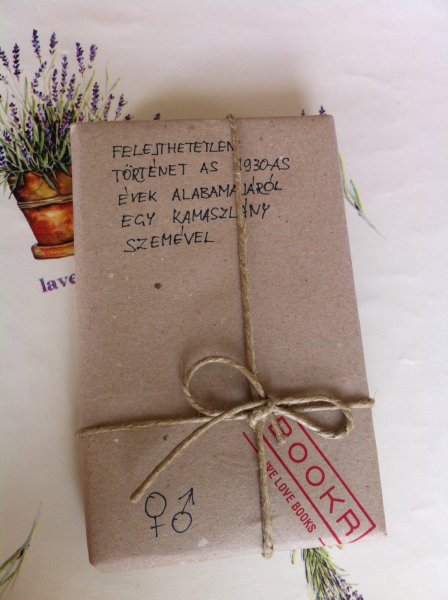 FELEJTHETETLEN
TÖRTÉNET AS 1930-AS
ÉVEK ALABAMAJÁRÓL
EGY KAMASZLÁNY
SZEMÉVEL
lave
BOOKR
WE LOVE BOOKS
♀ ♂